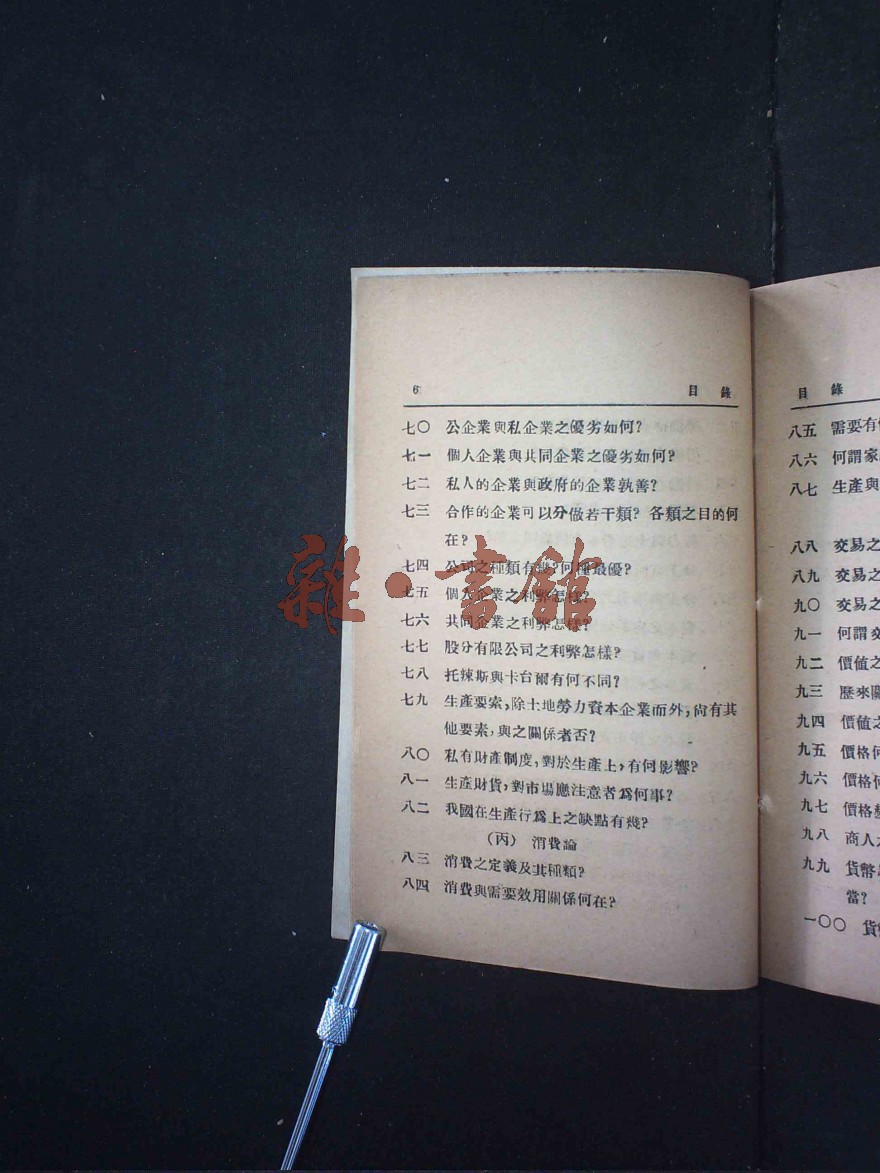 6 目 錄
七〇 公企業與私企業之優劣如何?
七一 個人企業與共同企業之優劣如何?
七二 私人的企業與政府的企業孰善?
七三 合作的企業可以分做若干類? 各類之目的何
在?
七四 公司之種類有幾?何種最優?
七五 個人企業之利弊怎樣?
七六 共同企業之利弊怎樣?
七七 股分有限公司之利弊怎樣?
七八 托辣斯與卡台爾有何不同?
七九 生產要索,除土地勞力資本企業而外,尙有其
他要素,與之關係者否?
八〇 私有財產制度,對於生產上,有何影響?
八一 生產財貨,對市場應注意者爲何事?
八二 我國在生產行爲上之缺點有幾?
(丙) 消費論
八三 消費之定義及其種類?
八四 消費與需要效用關係何在?
雜·書館
目 錄
八五 需要有
八六 何謂家
八七 生產與
八八 交易之
八九 交易之
九〇 交易之
九一 何謂交
九二 價値之
九三 歷來關
九四 價値之
九五 價格何
九六 價格
九七 價格
九八 商人
九九 貨幣
當?
一〇〇 貨